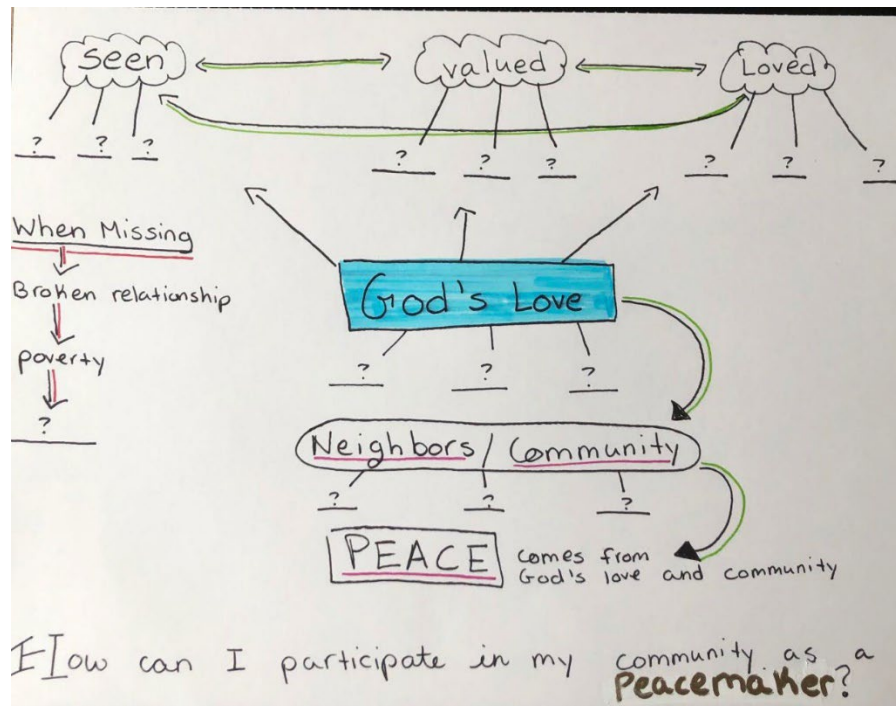 seen valued Loved
? ? ? ? ? ? ? ? ?
When Missing
Broken relationship
poverty
?
God's Love
? ? ?
Neighbors / Community
? ? ?
PEACE comes from
God's love and community
How can I participate in my community as a
Peacemaker?